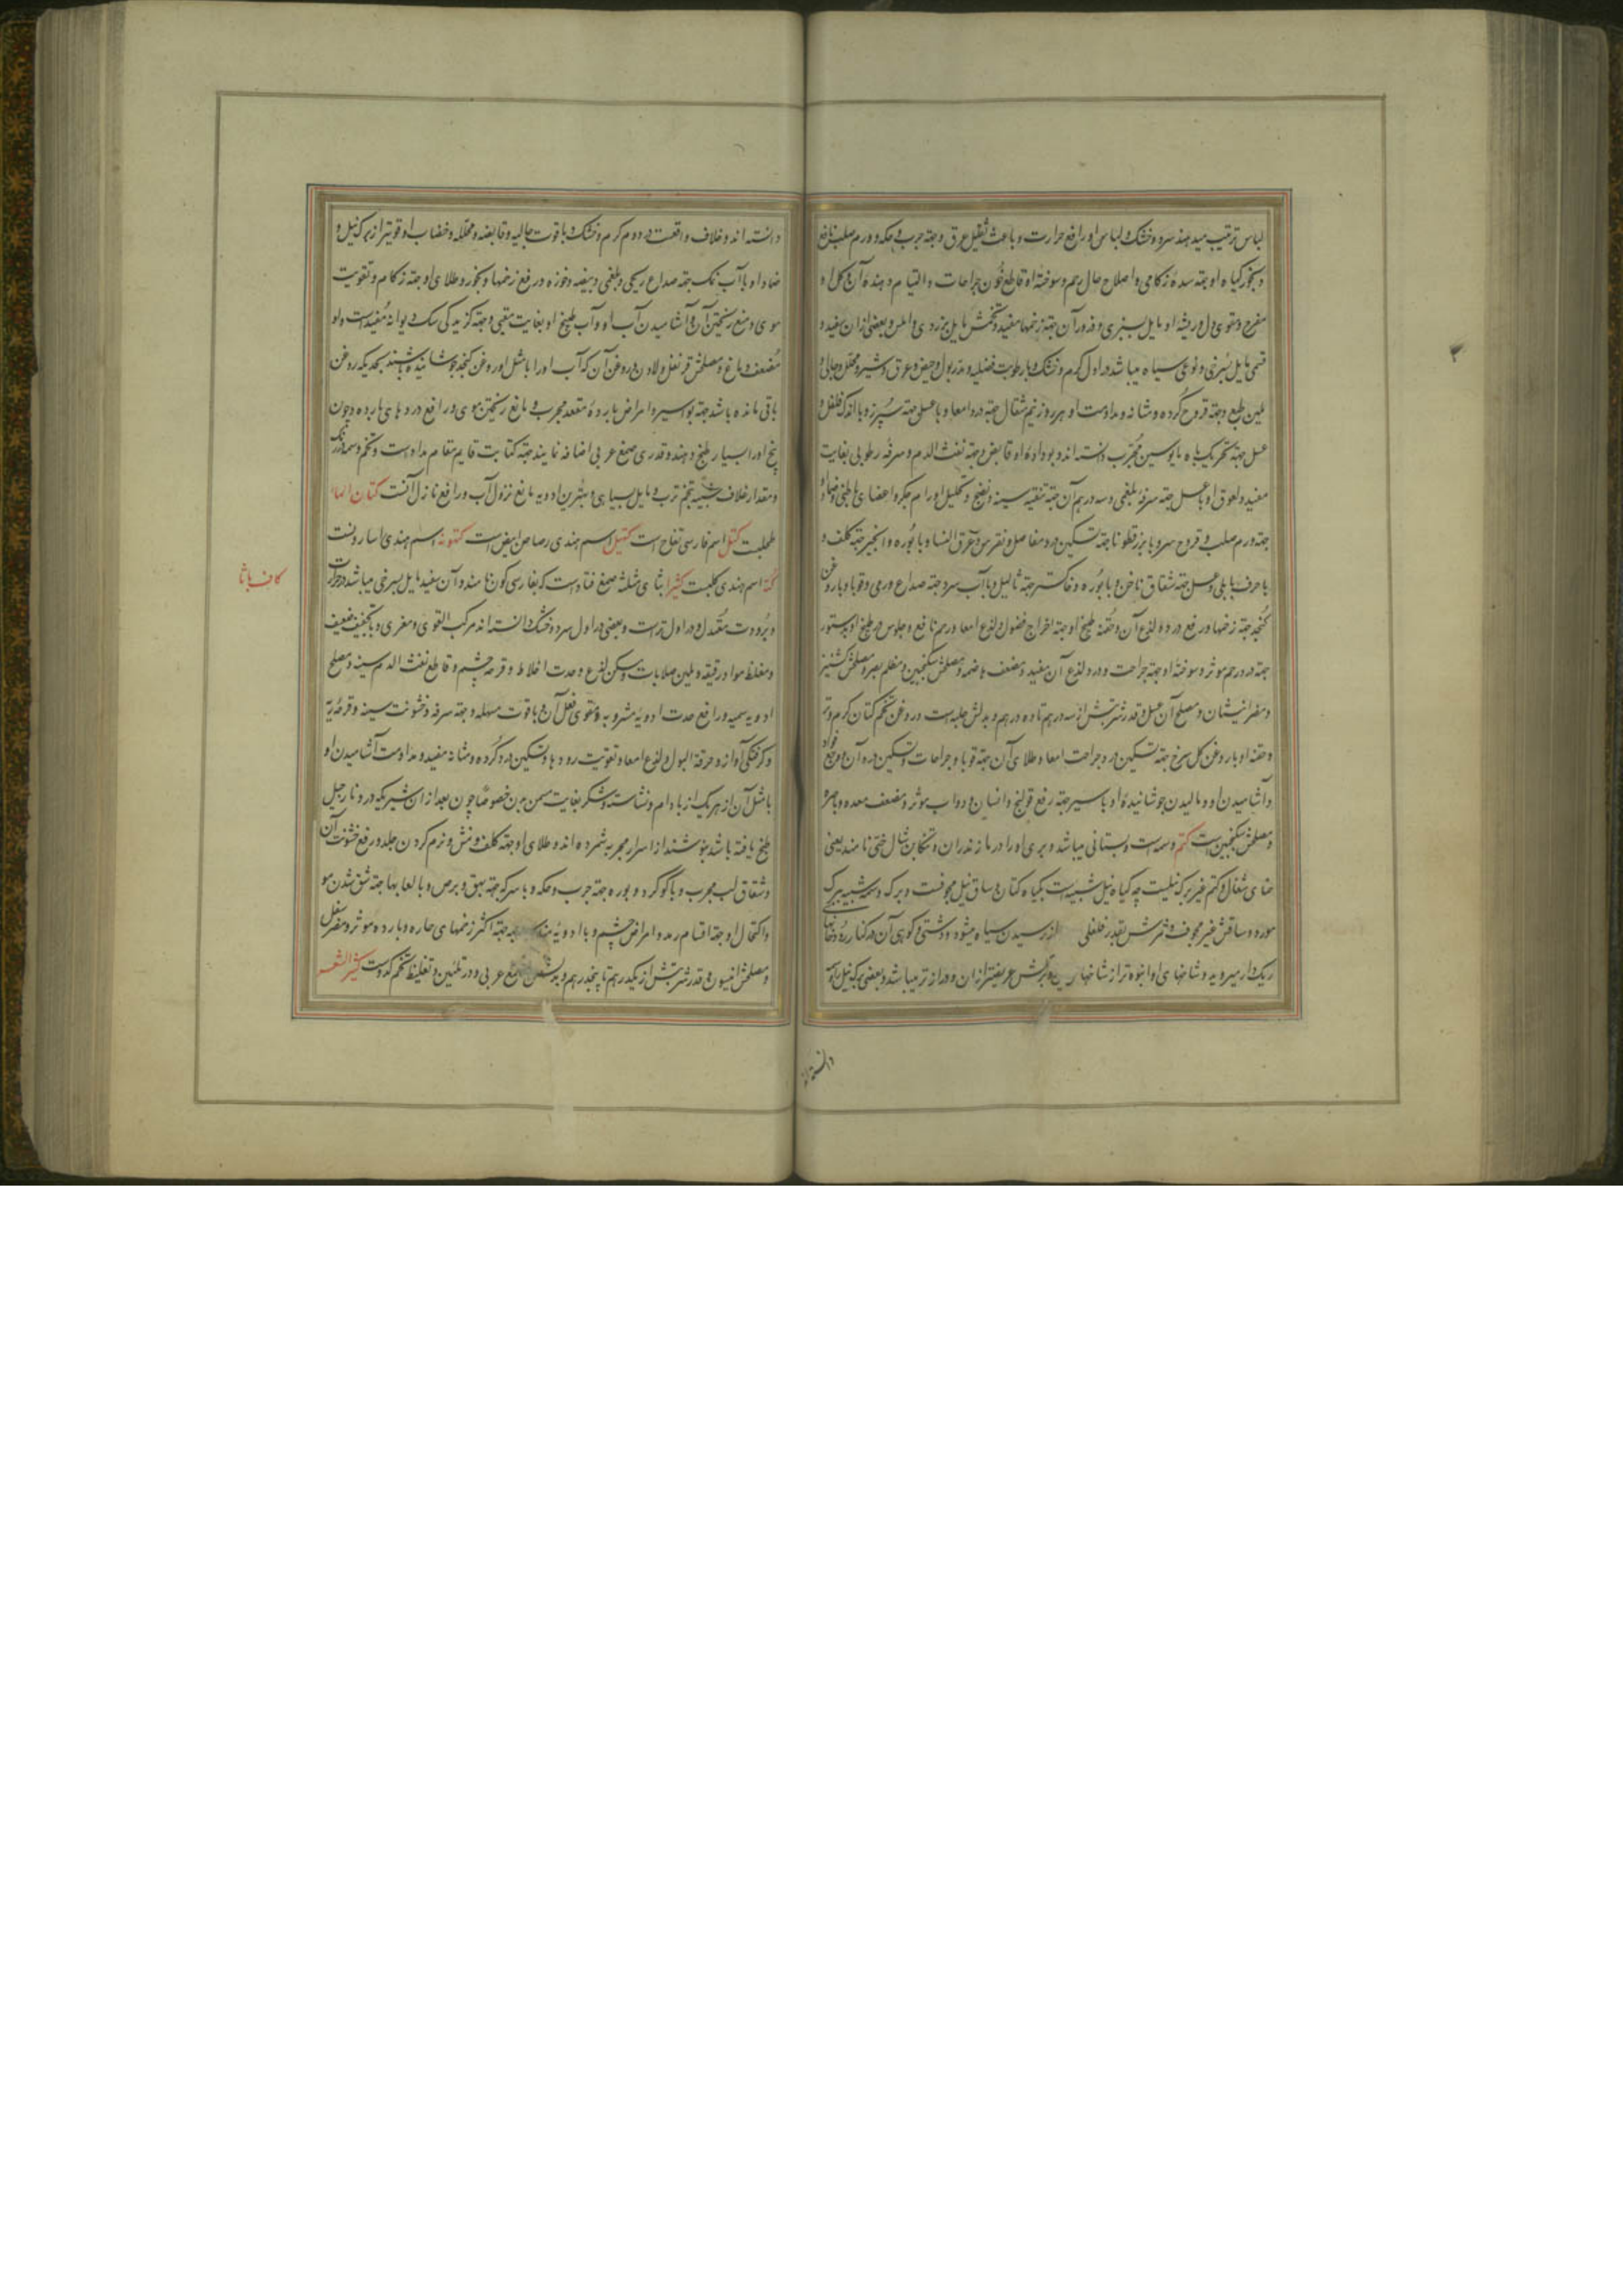 لباس ترتیب میدهند سرد و خشک و لباس او رافع حرارت و باعث تقلیل عرق و جهة جرب و حکه و ورم صلب نافع
و بخور گیاه او جهة سده زکامی و اصلاح حال رحم و سوختهٔ او قاطع خون جراحات و التیام دهندهٔ آن و گل او
مفرح و مقوی دل و ریشهٔ او مایل بسبزی و ذرور آن جهة زخمها مفید و تخمش مایل بزردی و املس و بعضی ازان سفید و
قسمی مایل بسرخی و نوعی سیاه میباشد در اول گرم و خشک و با رطوبت فضلیه و مدر بول و حیض و عرق و شیر و محلل و جالی و
ملین طبع و جهة قروح گرده و مثانه و مداومت او هر روز نیم مثقال جهة درد امعا و با عسل جهة سپرز و با اندک فلفل و
عسل جهة تحریک باه مایوسین مجرب دانسته اند و بو دادهٔ او قابض و جهة نفث الدم و سرفهٔ رطوبی بغایت
مفید و لعوق او با عسل جهة سرفهٔ بلغمی و سه درهم آن جهة تنقیه سینه و نضج و تحلیل اورام جگر و اعضای باطنی و ضماد او
جهة ورم صلب و قروح سر و با بزرقطونا جهة تسکین درد مفاصل و نقرس و عرق النسا و با بوره و انجیر جهة کلف و
با حرف بابلی و عسل جهة شقاق ناخن و با بوره و خاکستر جهة ثالیل و با آب سرد جهة صداع ورمی و قوبا و با روغن
کنجد جهة زخمها و رفع درد و لذع آن و حقنهٔ طبیخ او جهة اخراج فضول و لذع امعا و رحم نافع و جلوس در طبیخ او بدستور
جهة درد رحم موثر و سوختهٔ او جهة جراحت و درد لذع آن مفید و مضعف هاضمه و مصلحش سکنجبین و مظلم بصر و مصلحش کشنیز
و مضر انیثان و مصلح آن عسل و قدر شربتش از سه درهم تا ده درهم و بدلش حلبه است و روغن تخم کتان گرم و تر
و حقنه او با روغن گل سرخ جهة تسکین درد جراحت امعا و طلای آن جهة قوبا و جراحات و تسکین درد آن و وجع فؤاد
و آشامیدن او و مالیدن جوشانیدهٔ او با سیر جهة رفع قولنج و انسان و دواب موثر و مضعف معده و باصره
و مصلحش سکنجبین است کتم وسمه است و بستانی میباشد و بری او را در مازندران و تنکابن شال ختی نامند یعنی
حنای شغال و کتم غیر برگ نیلست چه گیاه نیل شبیه است بگیاه کتان و ساق نیل مجوفست و برگ وسمه شبیه ببرگ
مورد و ساقش غیر مجوف و ثمرش بقدر فلفلی از رسیدن سیاه میشود و دشتی و کوهی آن در کنار رودخانها
ریک دار میروید و شاخهای او انبوه تر از شاخهای و برگش عریضتر ازان و دراز تر میباشد و بعضی برگ نیل را
دانسته اند
دانسته اند و خلاف واقعست در دوم گرم و خشک و با قوت جالیه و قابضه و محلله و خضاب او قویتر از برگ نیل و
ضماد او با آب نمک جهة صداع ریحی و بلغمی و بیضه و خوزه در رفع زخمها و بخور و طلای او جهة زکام و تقویت
موی و منع ریختن آن و آشامیدن آب او و آب طبیخ او بغایت مقیی و جهة گزیدگی سگ دیوانه مفید است و او
مضعف دماغ و مصلحش قرنفل و لادن و روغن آن که آب او را با مثل او روغن کنجد جوشانیده باشند بحدیکه روغن
باقی مانده باشد جهة بواسیر و امراض باردهٔ مقعد مجرب و مانع ریختن موی و رافع دردهای بارده و چون
بیخ او را بسیار طبخ دهند و قدری صمغ عربی اضافه نمایند جهة کتابت قایم مقام مداد است و تخم وسمه در رنگ
و مقدار غلاف شبیه بتخم ترب و مایل بسیاهی و بهترین ادویه مانع نزول آب و رافع نازل آنست کتان الماء
طحلبست کتل اسم فارسی تفاح است کتیل اسم هندی رصاص ابیض است کتونه اسم هندی اسارونست
کته اسم هندی کلبست کثیرا بثای مثلثه صمغ قتاد است که بفارسی کون نامند و آن سفید مایل بسرخی میباشد در حرارت
و برودت معتدل و در اول تر است و بعضی در اول سرد و خشک دانسته اند مرکب القوی و مغری و با تجفیف ضعیف
و مغلظ مواد رقیقه و ملین صلابات و مسکن لذع و حدت اخلاط و قرحه چشم و قاطع نفث الدم سینه و مصلح
ادویه سمیه و رافع حدت ادویهٔ مشروبه و مقوی فعل آن و با قوت مسهله و جهة سرفه و خشونت سینه و قرحهٔ ریه
و گرفتگی آواز و حرقة البول و لذع امعا و تقویت رودها و تسکین درد گرده و مثانه مفید و مداومت آشامیدن او
با مثل آن از هریک از بادام و نشاسته و شکر بغایت مسمن بدن خصوصا چون بعد از ان شیر که در و نارجیل
طبخ یافته باشد بنوشند از اسرار مجربه شمرده اند و طلای او جهة کلف و نمش و نرم کردن جلد و رفع خشونت آن
و شقاق لب مجرب و با گوگرد و بوره جهة جرب و حکه و با سرکه جهة بهق و برص و با لعابها جهة شق شدن مو
و اکتحال او جهة اقسام رمد و امراض چشم و با ادویهٔ مناسبه جهة اکثر زخمهای حاره و بارده موثر و مضر سفل
و مصلحش انیسون و قدر شربتش از یکدرهم تا پنجدرهم و بدلش صمغ عربی و در تلیین و تغلیظ تخم کدوست کثیر الشعر
کاف با ثا